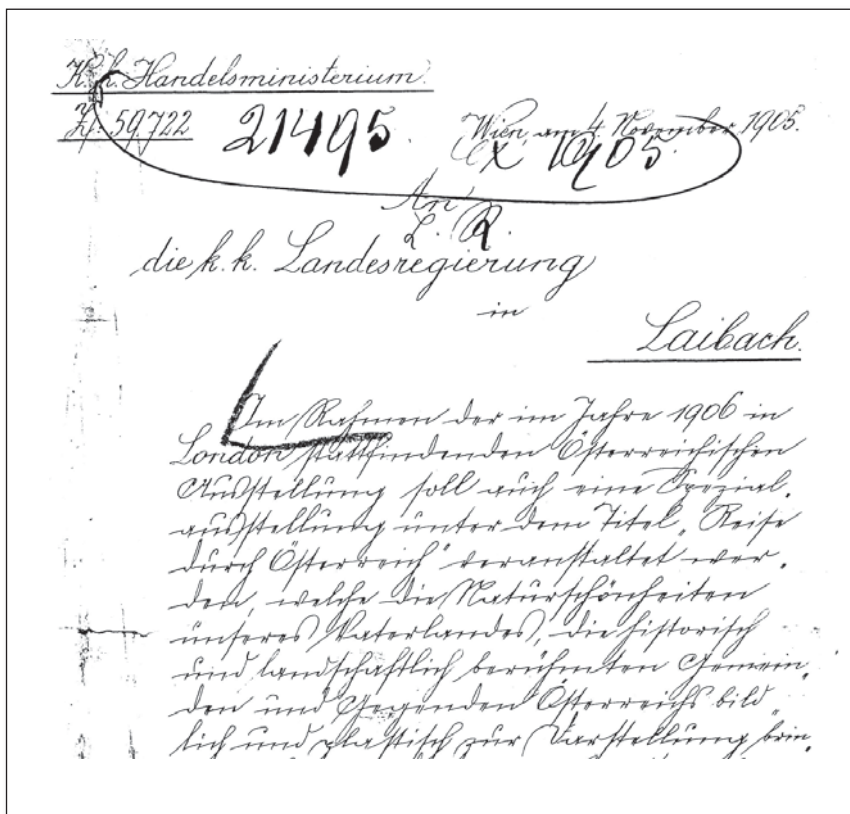 K. k. Handelsministerium.
Z: 59.722
21495
Wien, am 4. November 1905.
Ex 1905.
An
L. R.
die k. k. Landesregierung
in
Laibach.
Im Rahmen der im Jahre 1906 in
London stattfindenden Österreichischen
Ausstellung soll auch eine Spezial-
ausstellung unter dem Titel „Reise
durch Österreich" veranstaltet wer-
den, welche die Naturschönheiten
unseres Vaterlandes, die historisch
und landschaftlich berühmten Gemein-
den und Gegenden Österreichs bild-
lich und plastisch zur Darstellung brin-